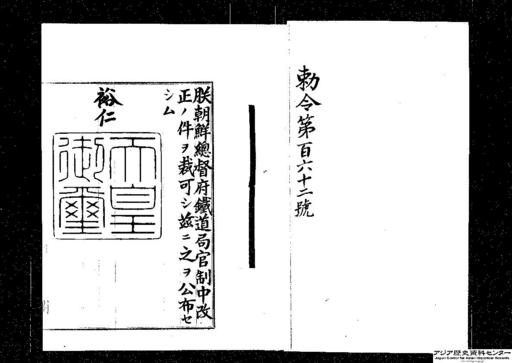 勅令第百六十二號
朕朝鮮總督府鐵道局官制中改
正ノ件ヲ裁可シ茲ニ之ヲ公布セ
シム
裕仁
天皇
御璽
アジア歴史資料センター
Japan Center for Asian Historical Records